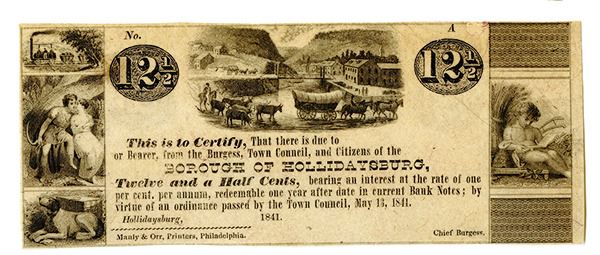 No. A
12½ 12½
This is to Certify, That there is due to
or Bearer, from the Burgess, Town Council, and Citizens of the
BOROUGH OF HOLLIDAYSBURG,
Twelve and a Half Cents, bearing an interest at the rate of one
per cent. per annum, redeemable one year after date in current Bank Notes; by
virtue of an ordinance passed by the Town Council, May 13, 1841.
Hollidaysburg, 1841.
Manly & Orr, Printers, Philadelphia. Chief Burgess.